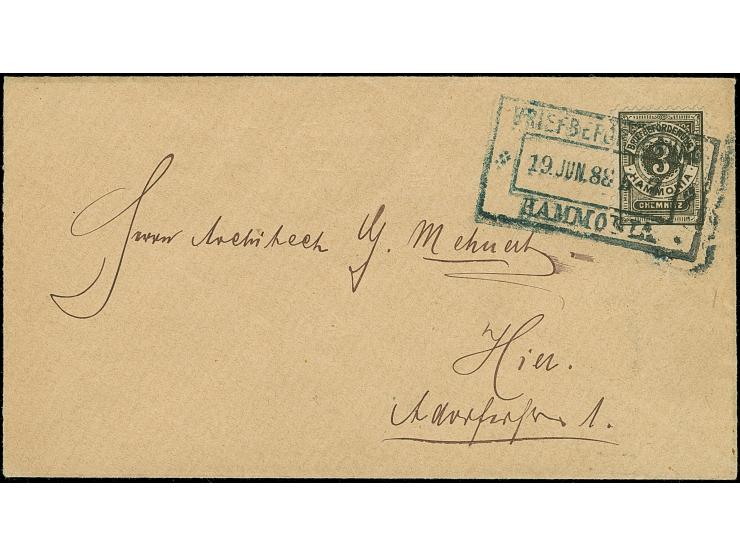 BRIEFBEFÖ
19. JUN. 88
HAMMONIA
BRIEFBEFÖRDERUNG
3
HAMMONIA
CHEMNITZ
Herrn Architect G. Mehnert
Hier.
Adorferstr. 1.